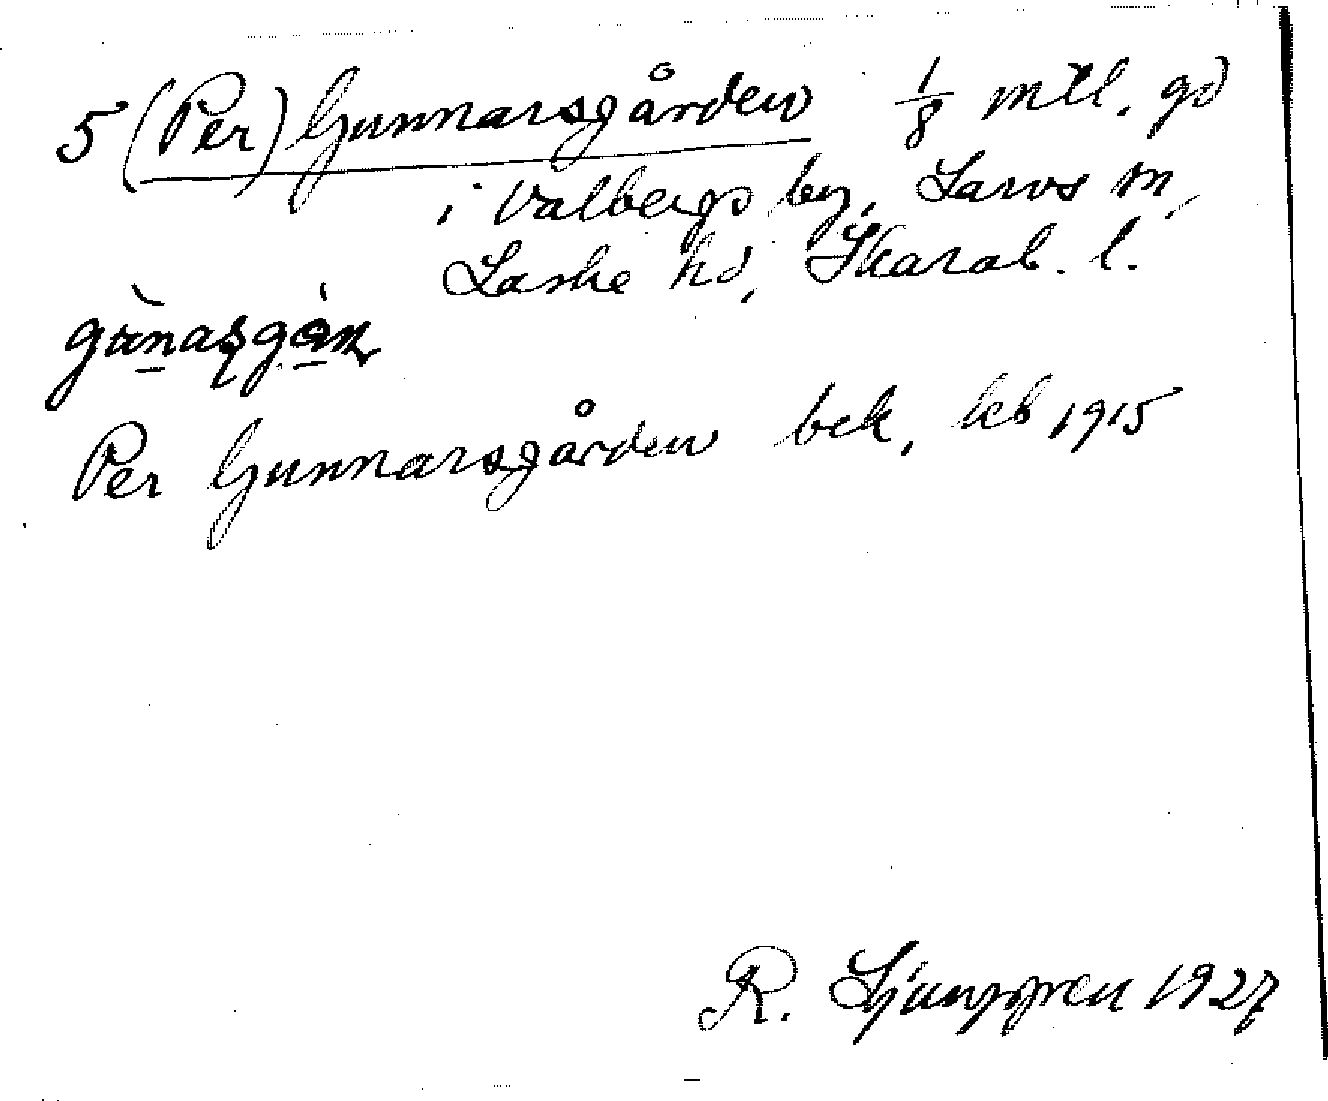 5 (Per) Gunnarsgården 1/8 mtl. gd
i Valbergs by, Larvs sn,
Laske hd, Skarab. l.
Per Gunnarsgården bek. leb 1915
R. Ljunggren 1927